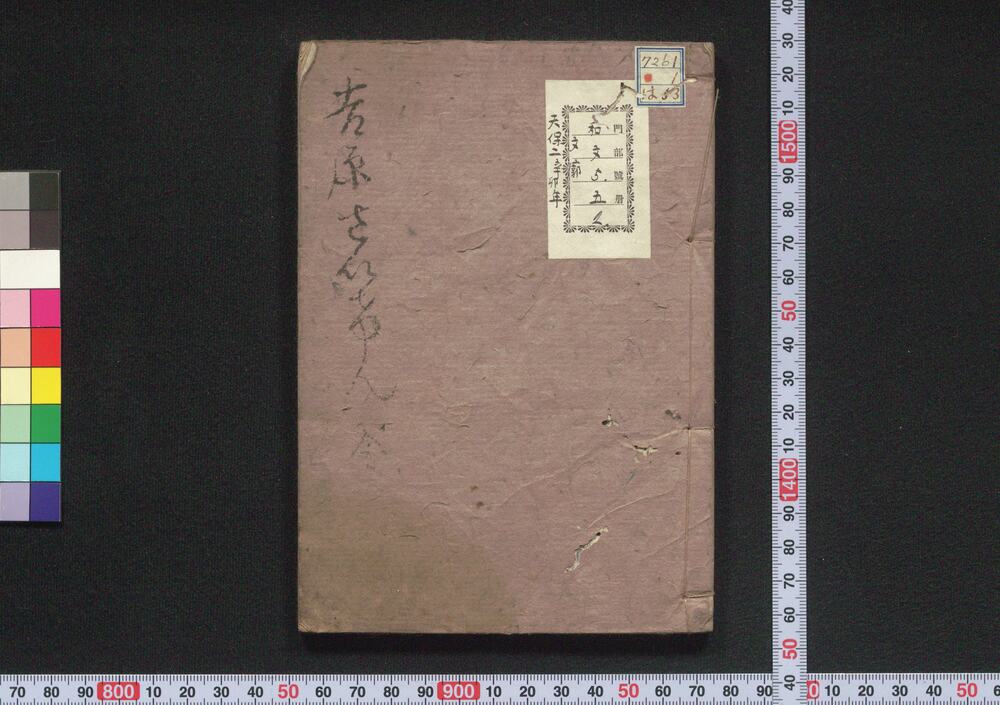 7261
1
は53
門 部 號 冊
和 文 5 五
文 郭
天保二辛卯年
吉原さいけん 全
70 80 90 800 10 20 30 40 50 60 70 80 90 900 10 20 30 40 50 60 70 80 90 0 10 20 30 40 50 6
40 30 20 10 1500 90 80 70 60 50 40 30 20 10 1400 90 80 70 60 50 40